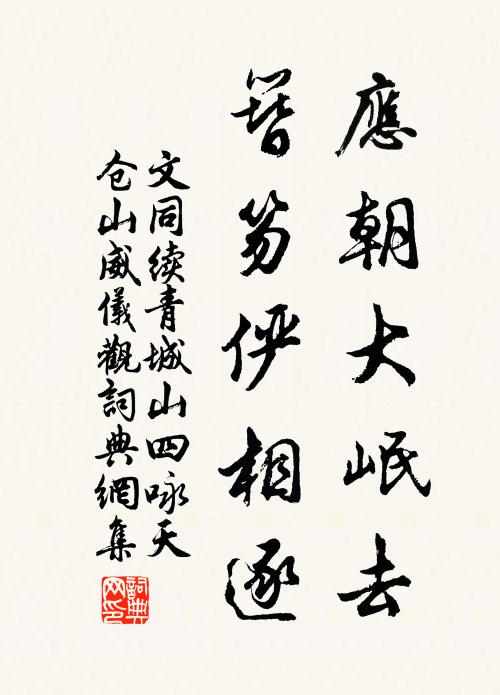 應朝大岷去
簪笏儼相逐
文同续青城山四咏天
仓山威儀觀詞典網集
詞典网印